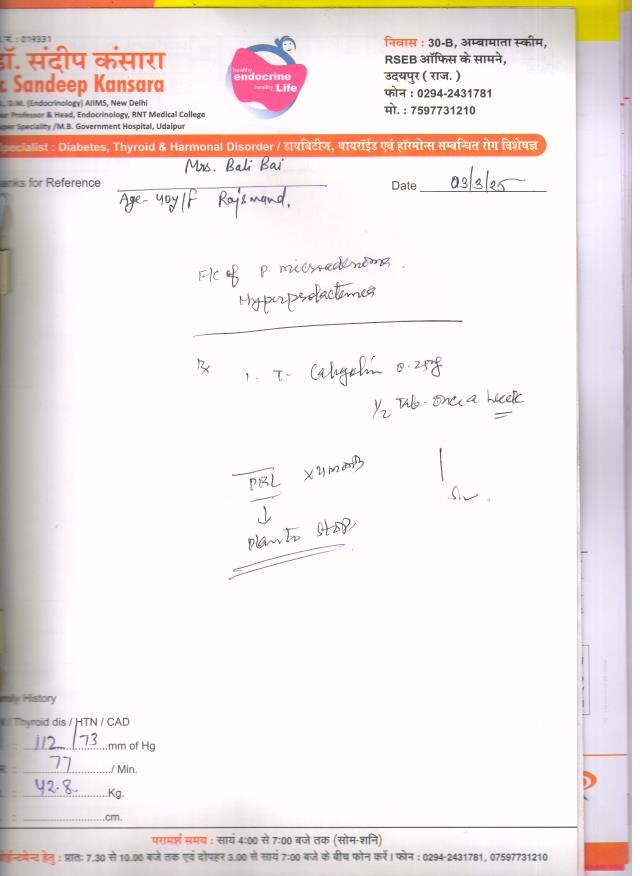 नं. : 019331
डॉ. संदीप कंसारा
Sandeep Kansara
D.M. (Endocrinology) AIIMS, New Delhi
Professor & Head, Endocrinology, RNT Medical College
Speciality /M.B. Government Hospital, Udaipur
healthy
endocrine
healthy Life
निवास : 30-B, अम्बामाता स्कीम,
RSEB ऑफिस के सामने,
उदयपुर ( राज. )
फोन : 0294-2431781
मो. : 7597731210
Specialist : Diabetes, Thyroid & Harmonal Disorder / डायबिटीज, थायरॉईड एवं हॉरमोन्स सम्बन्धित रोग विशेषज्ञ
Mrs. Bali Bai
anks for Reference
Date 03/3/25
Age- 40y/f Rajsmand.
F/C of P. microadenoma.
Hyperprolactemea
Rx 1. T- Cabgolin 0.25mg
1/2 Tab- once a week
PRL x 4 month
↓
Plan to stop
mily History
/ Thyroid dis / HTN / CAD
: 112/73 mm of Hg
: 77 / Min.
: 42.8 Kg.
: cm.
परामर्श समय : सायं 4:00 से 7:00 बजे तक (सोम-शनि)
पॉईन्टमेन्ट हेतु : प्रातः 7.30 से 10.00 बजे तक एवं दोपहर 3.00 से सायं 7:00 बजे के बीच फोन करें। फोन : 0294-2431781, 07597731210